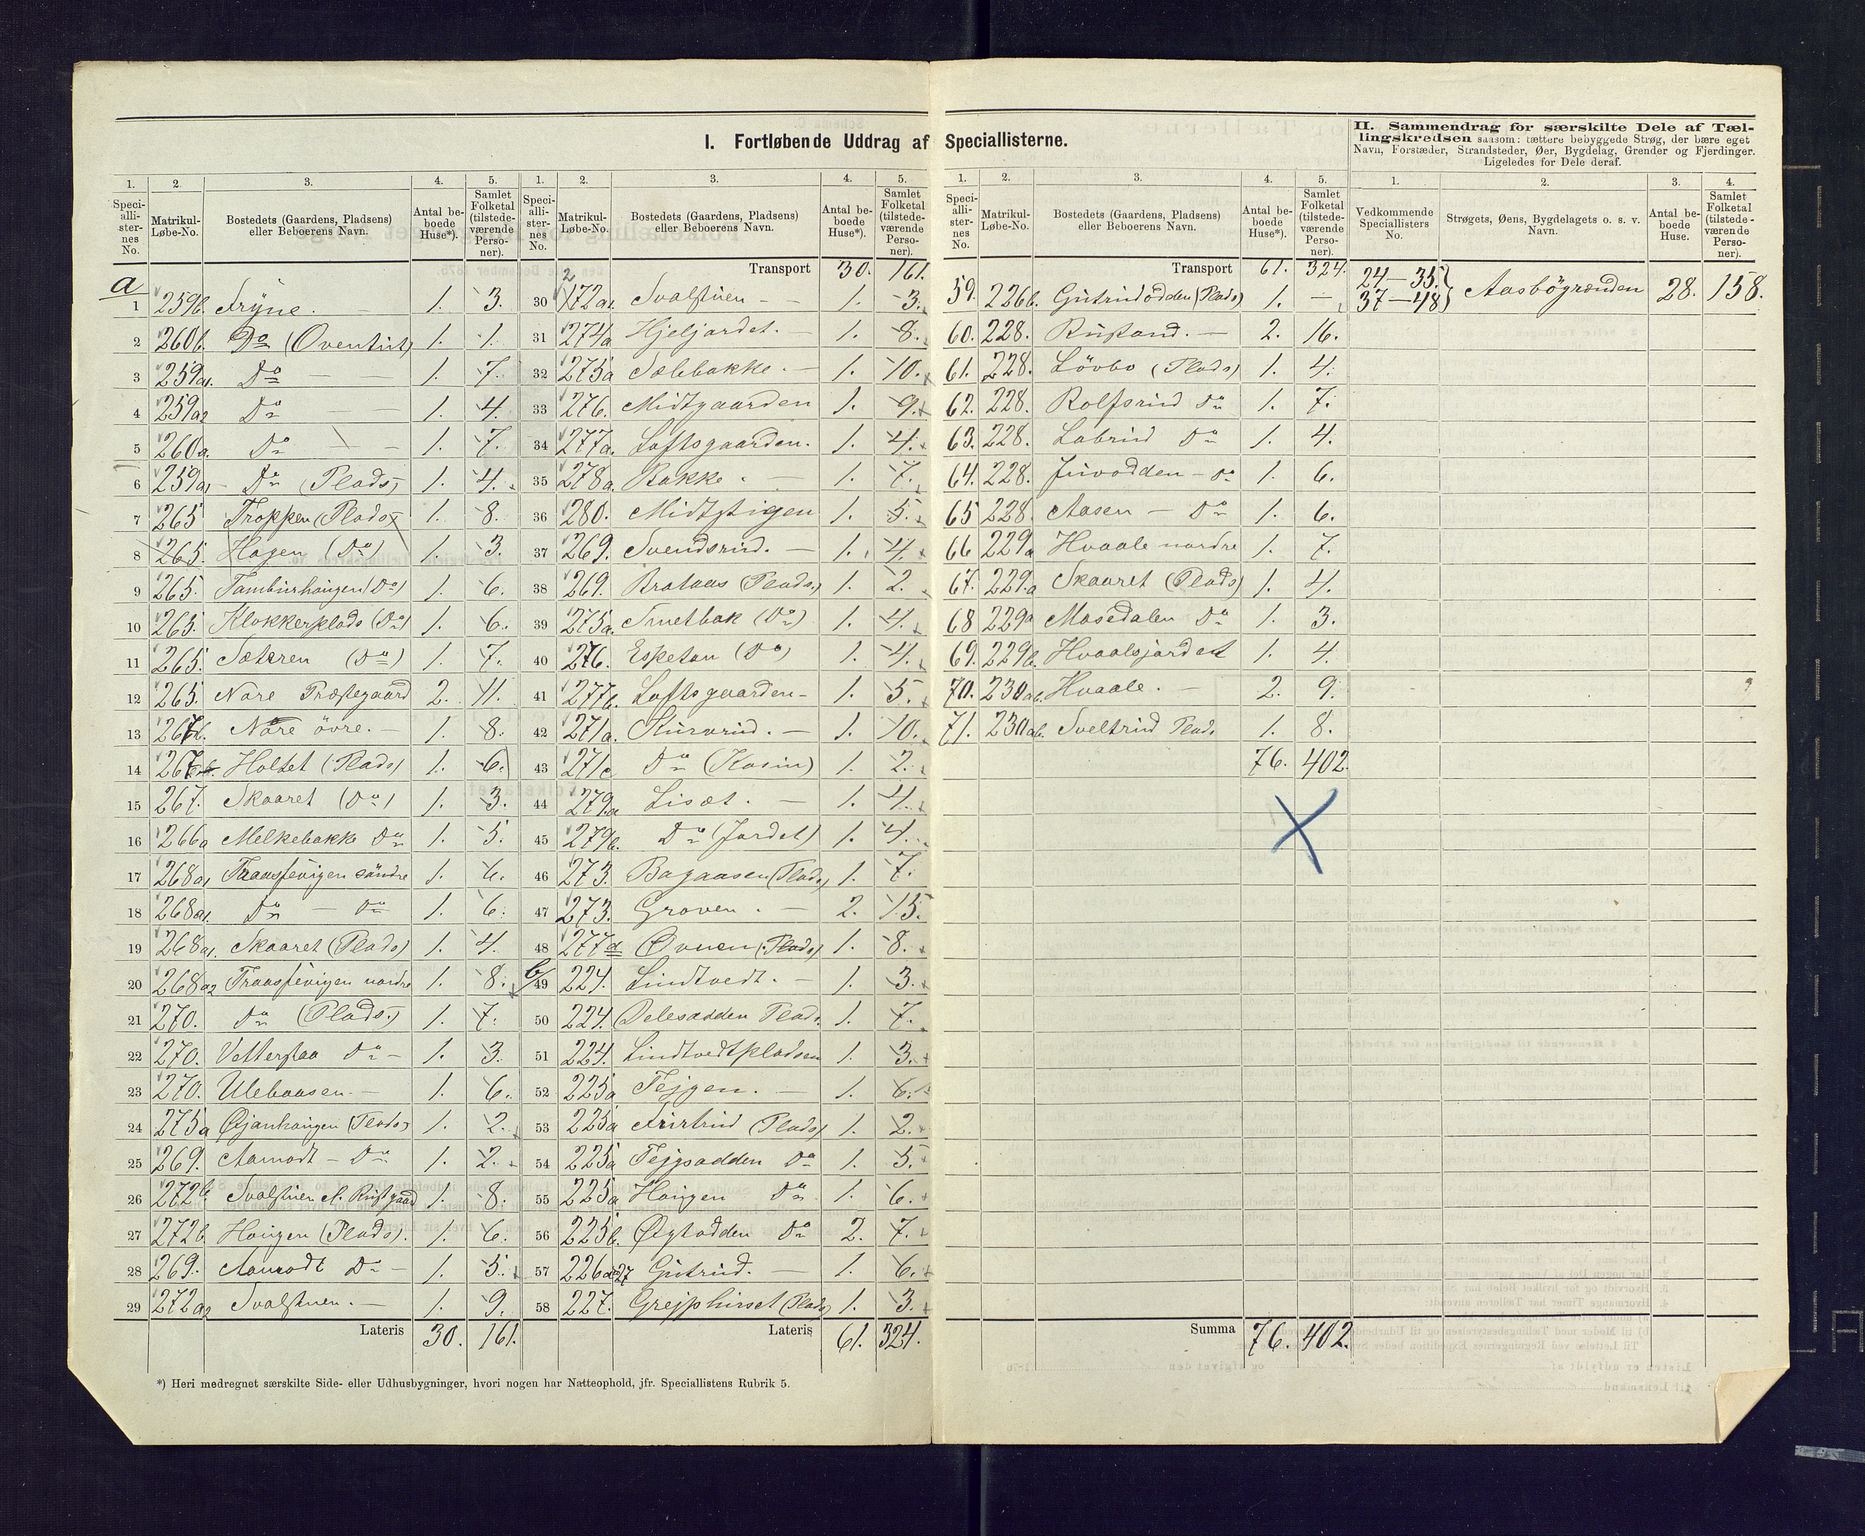 I. Fortløbende Uddrag af Speciallisterne.
II. Sammendrag for særskilte Dele af Tællingskredsen saasom: tættere bebyggede Strøg, der bære eget
Navn, Forstæder, Strandsteder, Øer, Bygdelag, Grender og Fjerdinger.
Ligeledes for Dele deraf.
1. 2. 3. 4. 5.
Speciallisternes No. Matrikul-Løbe-No. Bostedets (Gaardens, Pladsens) eller Beboerens Navn. Antal beboede Huse*). Samlet Folketal (tilstedeværende Personer).
a
1 259b. Fryne. — 1. 3.
2 260b. Do (Oventut) 1. 1.
3 259a1. Do — 1. 7.
4 259a2 Do — 1. 4.
5 260a. Do — 1. 7.
6 259a1 Do (Plads) 1. 4.
7 265 Troppen (Plads) 1. 8.
8 265. Hagen (Do) 1. 3.
9 265. Tamburhaugen (Do) 1. 6.
10 265. Klokkerplads (Do) 1. 6.
11 265. Sæteren (Do) 1. 7.
12 265. Nore Præstegaard 2. 11.
13 267b. Nore övre. — 1. 8.
14 267 Holtet (Plads) 1. 6.
15 267. Skaaret (Do) 1. 3.
16 266a Melkebakke Do 1. 5.
17 268a1 söndre 1. 6.
18 268a1. Do — Do 1. 6.
19 268a1. Skaaret (Plads) 1. 4.
20 268a2 nordre 1. 8.
21 270. Do (Plads) 1. 7.
22 270. Do — 1. 3.
23 270. Ulebaasen. — 1. 6.
24 275a Øijanhaugen (Plads) 1. 2.
25 269. Aamodt — Do 1. 2.
26 272b 1. 8.
27 272b. Haugen (Plads). 1. 6.
28 269. Aamodt Do — 1. 5.
29 272a2 — 1. 9.
Lateris 30. 161.
1. 2. 3. 4. 5.
Speciallisternes No. Matrikul-Løbe-No. Bostedets (Gaardens, Pladsens) eller Beboerens Navn. Antal beboede Huse*). Samlet Folketal (tilstedeværende Personer).
Transport 30. 161.
30 272a1. — 1. 3.
31 274a Hjeljordet. — 1. 8.
32 275a Sælebakke. — 1. 10.
33 276. Midtgaarden 1. 9.
34 277a. Loftsgaarden. 1. 4.
35 278a. Bakke. — 1. 7.
36 280. Midtstigen 1. 5.
37 269. Svendsrud. — 1. 4.
38 269. Brataas (Plads) 1. 2.
39 275a. (Do) 1. 4.
40 276. Espetun (Do) 1. 4.
41 277b. Loftsgaarden — 1. 5.
42 271a. — 1. 10.
43 271c Do 1. 2.
44 279a Lisæt. — 1. 4.
45 279b. Do (Jordet) 1. 4.
46 273. Bagaasen (Plads) 1. 7.
47 273. Graven. — 2. 15.
48 277d (Plads) 1. 8.
b/
49 224. Lindtvedt. — 1. 3.
50 224. Plads. 1. 7.
51 224. Lindtvedtpladsen 1. 3.
52 225a Tejgen. — 1. 6.
53 225a (Plads) 1. 2.
54 225a Tejgsodden Do 1. 5.
55 225a Haugen Do 1. 6.
56 225b. Do 2. 7.
57 226a 227 Gutrud. — 1. 6.
58 227. (Plads) 1. 3.
Lateris 61. 324.
*) Heri medregnet særskilte Side- eller Udhusbygninger, hvori nogen har Natteophold, jfr. Speciallistens Rubrik 5.
1. 2. 3. 4. 5.
Speciallisternes No. Matrikul-Løbe-No. Bostedets (Gaardens, Pladsens) eller Beboerens Navn. Antal beboede Huse*). Samlet Folketal (tilstedeværende Personer).
Transport 61. 324.
59. 226b. Gutrudodden (Plads) 1. —
60. 228. Rustand. — 2. 16.
61. 228. Lövbo (Plads) 1. 4.
62. 228. Rolfsrud Do 1. 7.
63. 228. Labrud Do 1. 4.
64. 228. Juvodden — Do 1. 6.
65 228. Aasen — Do 1. 6.
66 229a Hvaale nordre 1. 7.
67. 229a Skaaret (Plads) 1. 4.
68 229a Mosedalen Do 1. 3.
69. 229b. Hvaalsjordet 1. 4.
70. 230ab. Hvaale. — 2. 9.
71. 230ab. Sveltrud Plads. 1. 8.
76. 402.
Summa 76. 402.
1. 2. 3. 4.
Vedkommende Speciallisters No. Strøgets, Øens, Bygdelagets o. s. v. Navn. Antal beboede Huse. Samlet Folketal (tilstedeværende Personer).
24—35.
37—48 } Aasbögrænden 28. 158.